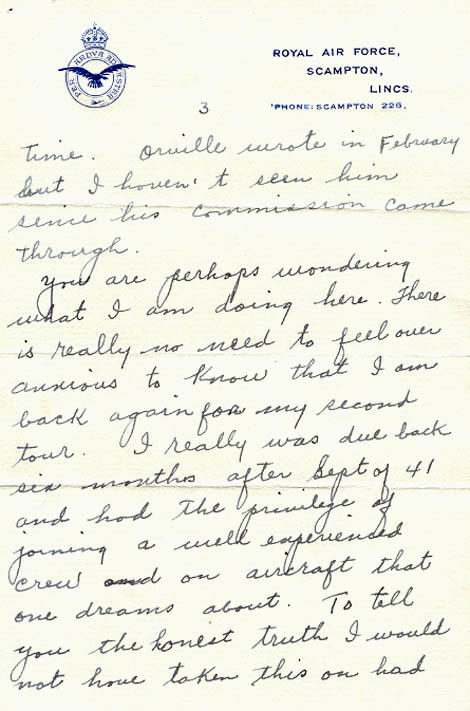 PER ARDVA AD ASTRA
ROYAL AIR FORCE,
SCAMPTON,
LINCS.
'PHONE: SCAMPTON 226.
3
time. Orville wrote in February
but I haven't seen him
since his commission came
through.
You are perhaps wondering
what I am doing here. There
is really no need to feel over
anxious to know that I am
back again for my second
tour. I really was due back
six months after Sept of 41
and had the privilege of
joining a well experienced
crew and on aircraft that
one dreams about. To tell
you the honest truth I would
not have taken this on had